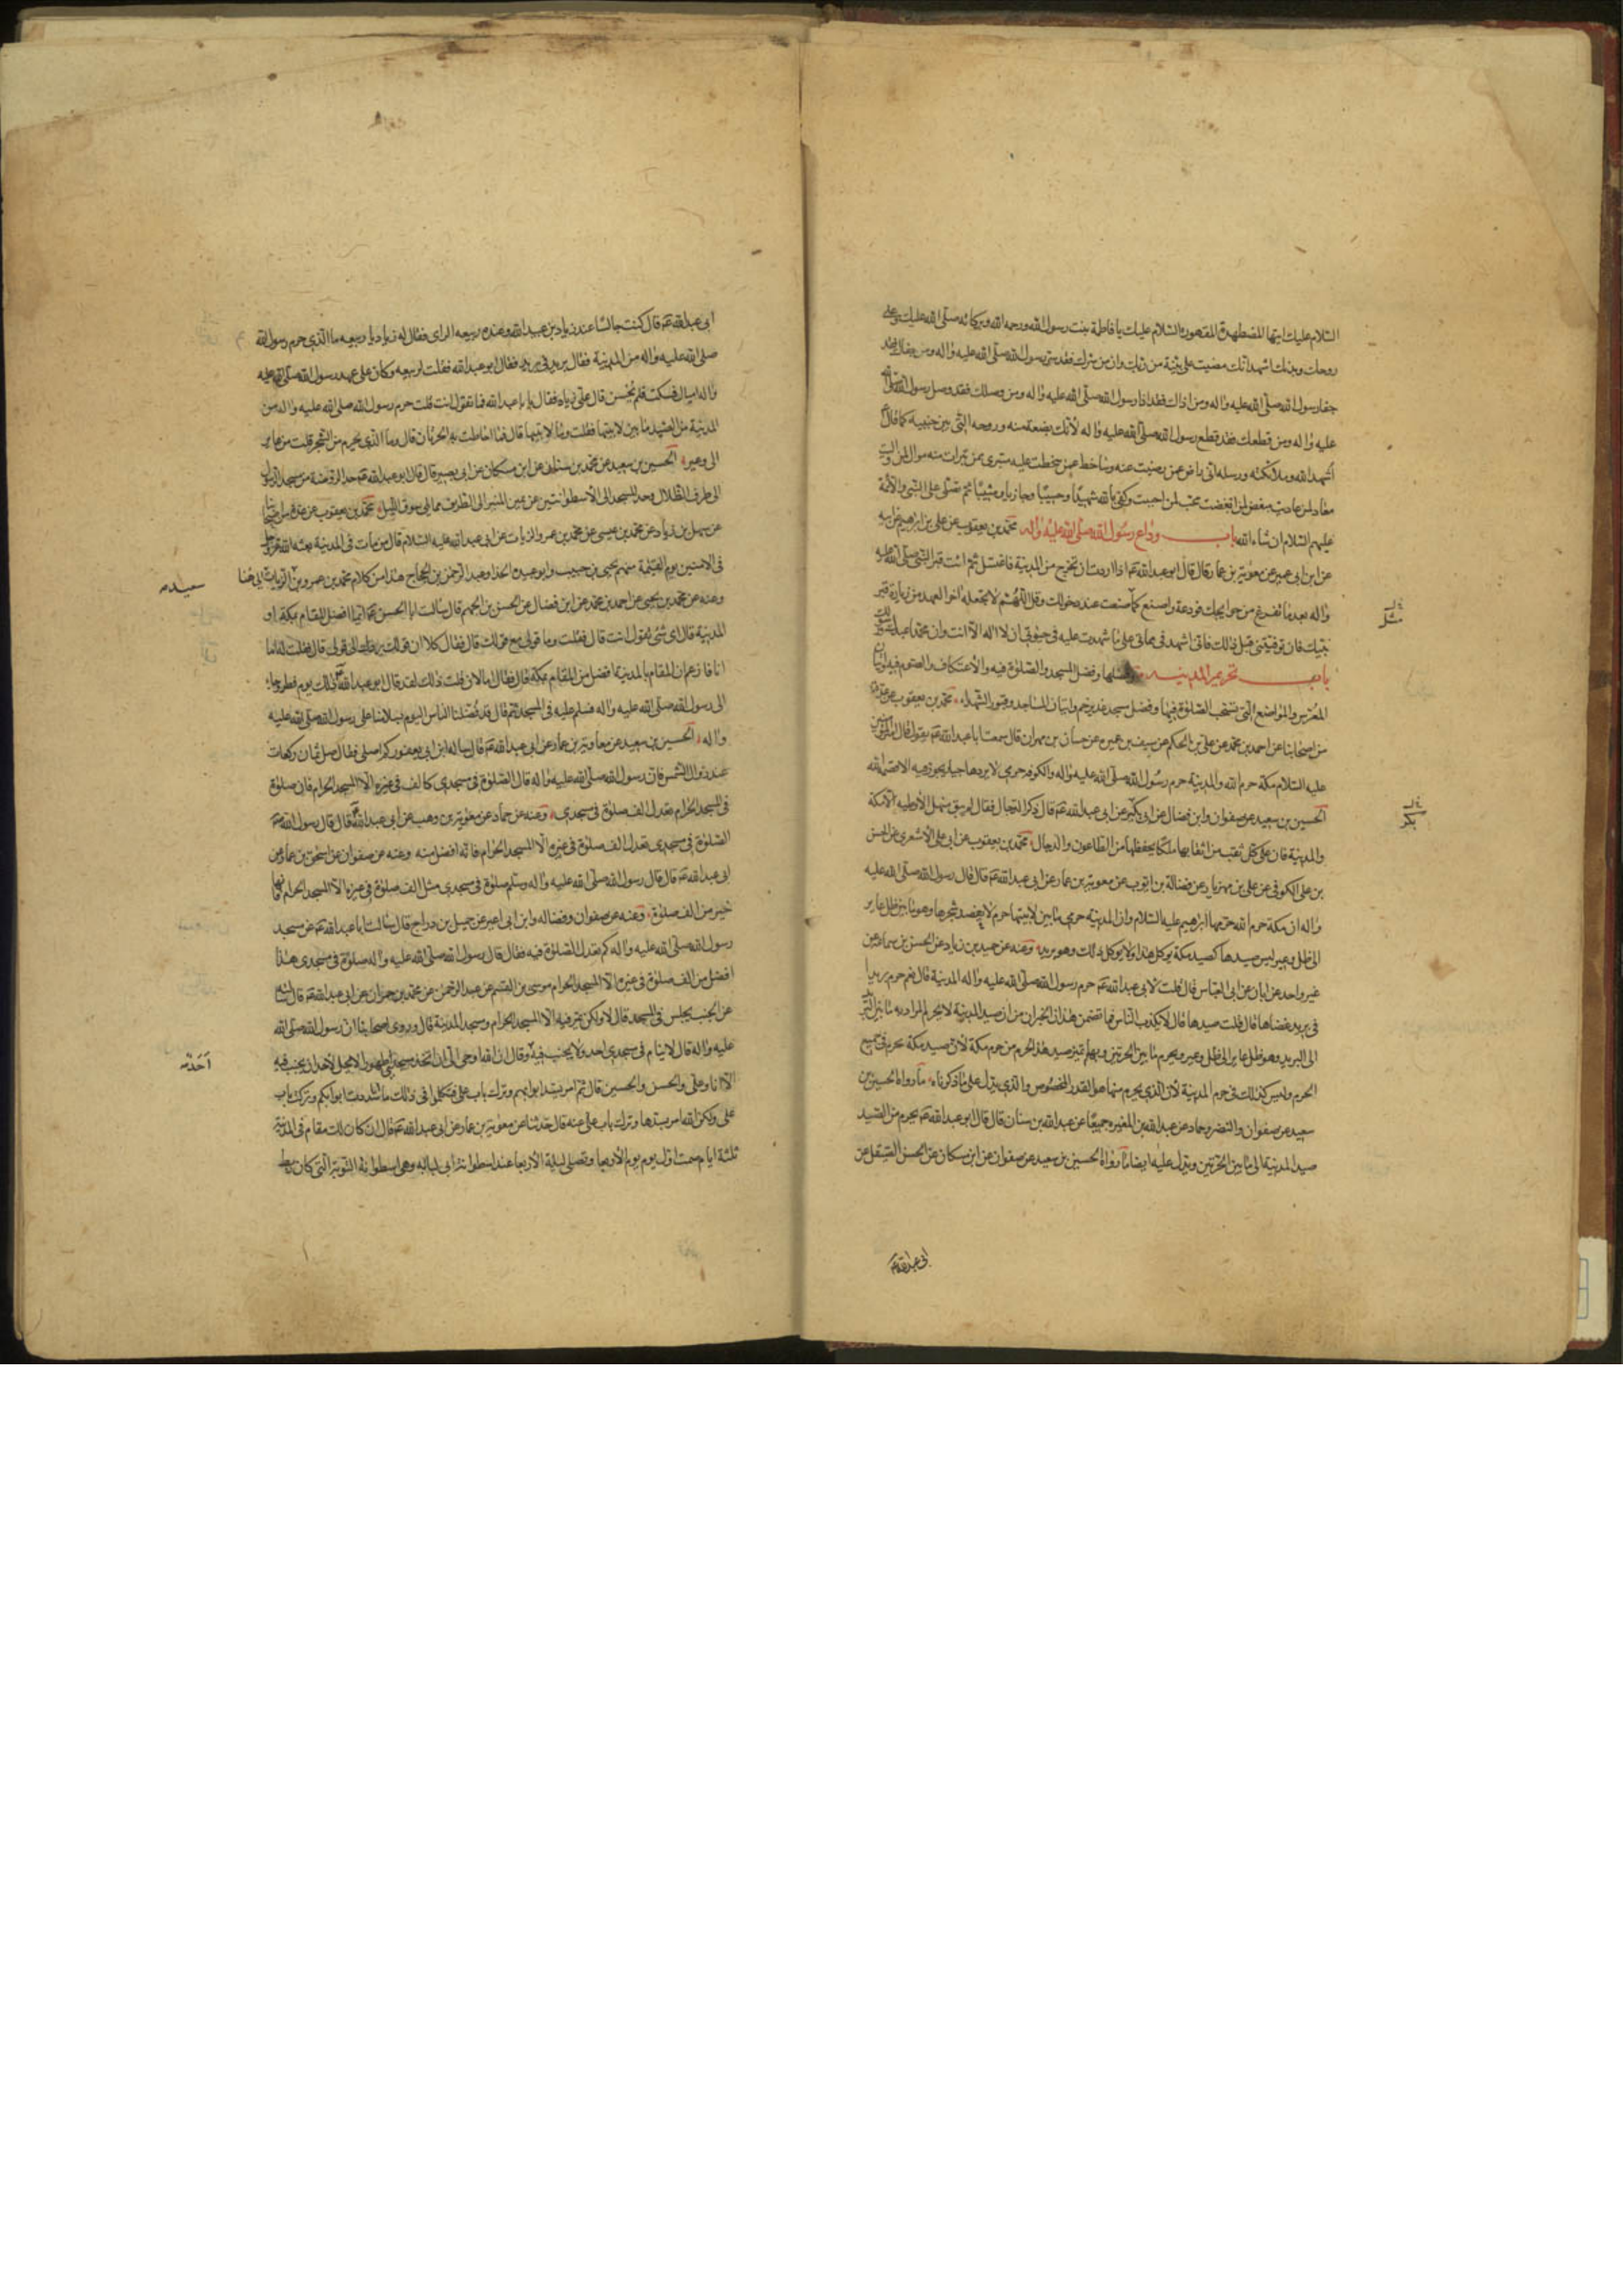 السلام عليك ايتها المضطهدة المقهورة السلام عليك يا فاطمة بنت رسول الله ورحمة الله وبركاته صلى الله عليك وعلى
روحك وبدنك اشهد انك مضيت على بينة من ربك وان من سرك فقد سر رسول الله صلى الله عليه واله ومن جفاك فقد
جفا رسول الله صلى الله عليه واله ومن اذاك فقد اذا رسول الله صلى الله عليه واله ومن وصلك فقد وصل رسول الله صلى الله
عليه واله ومن قطعك فقد قطع رسول الله صلى الله عليه واله لانك بضعة منه وروحه التى بين جنبيه كما قال
اشهد الله وملائكته ورسله انى راض عمن رضيت عنه وساخط عمن سخطت عليه متبرى ممن تبرات منه موال لمن واليت
معاد لمن عاديت مبغض لمن ابغضت محب لمن احببت وكفى بالله شهيدا وحسيبا وجازيا ومثيبا ثم تصلى على النبى والائمة
عليهم السلام ان شاء الله باب وداع رسول الله صلى الله عليه واله محمد بن يعقوب عن على بن ابراهيم عن ابيه
عن ابن ابى عمير عن معوية بن عمار قال قال ابو عبد الله ع اذا اردت ان تخرج من المدينة فاغتسل ثم ائت قبر النبى صلى الله عليه
واله بعد ما تفرغ من حوايجك فودعه واصنع كما صنعت عند دخولك وقل اللهم لا تجعله اخر العهد من زيارة قبر
نبيك فان توفيتنى قبل ذلك فانى اشهد فى مماتى على ما شهدت عليه فى حيوتى ان لا اله الا انت وان محمدا عبدك ورسولك
باب تحريم المدينة وفضلها وفضل المسجد والصلوة فيه والاعتكاف والصوم فيه واتيان
المعرس والمواضع التى تستحب الصلوة فيها وفضل مسجد غدير خم واتيان المساجد وقبور الشهداء محمد بن يعقوب عن عدة
من اصحابنا عن احمد بن محمد عن على بن الحكم عن سيف بن عميره عن حسان بن مهران قال سمعت ابا عبد الله ع يقول قال امير المؤمنين
عليه السلام مكة حرم الله والمدينة حرم رسول الله صلى الله عليه واله والكوفه حرمى لا يردها جبار يجور فيه الا قصمه الله
الحسين بن سعيد عن صفوان وابن فضال عن ابن بكير عن ابى عبد الله ع قال ذكر الدجال فقال لم يبق منهل الا وطيه الا مكة
والمدينة فان على كل نقب من انقابها ملكا يحفظها من الطاعون والدجال محمد بن يعقوب عن ابى على الاشعرى عن الحسن
بن على الكوفى عن على بن مهزيار عن فضالة بن ايوب عن معوية بن عمار عن ابى عبد الله ع قال قال رسول الله صلى الله عليه
واله ان مكة حرم الله حرمها ابراهيم عليه السلام وان المدينة حرمى ما بين لابتيها حرم لا يعضد شجرها وهو ما بين ظل عاير
الى ظل وعير ليس صيدها كصيد مكة يوكل هذا ولا يوكل ذلك وهو بريد وعنه عن حميد بن زياد عن الحسن بن سماعه عن
غير واحد عن ابان عن ابى العباس قال قلت لابى عبد الله ع حرم رسول الله صلى الله عليه واله المدينة قال نعم حرم بريدا
فى بريد عضاها قال قلت صيدها قال لا يكذب الناس فما تضمن هذان الخبران من ان صيد المدينة لا يحرم المراد به ما بين البريد
الى البريد وهو ظل عاير الى ظل وعير ويحرم ما بين الحرتين وبهذا تميز صيد هذا الحرم من حرم مكة لان صيد مكة محرم فى جميع
الحرم وليس كذلك فى حرم المدينة لان الذى يحرم منها هو القدر المخصوص والذى يدل على ما ذكرناه ما رواه الحسين بن
سعيد عن صفوان والنضر وحماد عن عبد الله بن المغيره جميعا عن عبد الله بن سنان قال قال ابو عبد الله ع يحرم من الصيد
صيد المدينة الى ما بين الحرتين ويدل عليه ايضا ما رواه الحسين بن سعيد عن صفوان عن ابن مسكان عن الحسن الصيقل عن
ابى عبد الله ع
مثل
بكر
ابى عبد الله ع قال كنت جالسا عند زياد بن عبد الله وعنده ربيعه الراى فقال له زياد يا ربيعه ما الذى حرم رسول الله
صلى الله عليه واله من المدينة فقال بريد فى بريد فقال ابو عبد الله فقلت لربيعه وكان على عهد رسول الله صلى الله عليه
واله اميال فسكت فلم يحسن قال على زياد فقال يا با عبد الله فما تقول انت قلت حرم رسول الله صلى الله عليه واله من
المدينة من الصيد ما بين لابتيها فقلت وما لابتيها قال فما احاطت به الحرتان قال وما الذى يحرم من الشجر قلت من عاير
الى وعير الحسين بن سعيد عن محمد بن سنان عن ابن مسكان عن ابى بصير قال قال ابو عبد الله ع حد الروضة من مسجد الرسول
الى طرف الظلال وحد المسجد الى الاسطوانتين عن يمين المنبر الى الطريق مما يلى سوق الليل محمد بن يعقوب عن عدة من اصحابنا
عن سهل بن زياد عن محمد بن عيسى عن محمد بن عمرو الزيات عن ابى عبد الله عليه السلام قال من مات فى المدينة بعثه الله عز وجل
فى الامنين يوم القيمة منهم يحيى بن حبيب وابو عبيده الحذا وعبد الرحمن بن الحجاج هذا من كلام محمد بن عمرو بن الزيات
وعنه عن محمد بن يحيى عن احمد بن محمد عن ابن فضال عن الحسن بن الجهم قال سالت ابا الحسن ع ايما افضل المقام بمكة او
المدينة قال اى شى تقول انت قال فقلت وما قولى مع قولك قال فقال كلا ان قولك يردك الى قولى قال فقلت له اما
انا فازعم ان المقام بالمدينة افضل من المقام بمكة قال فقال اما لان قلت ذلك لقد قال ابو عبد الله ذلك يوم فطر وجاء
الى رسول الله صلى الله عليه واله فسلم عليه فى المسجد ثم قال قد فضلنا الناس اليوم بسلامنا على رسول الله صلى الله عليه
واله الحسين بن سعيد عن معاوية بن عمار عن ابى عبد الله ع قال ساله ابن ابى يعفور كم اصلى فقال صل ثمان ركعات
عند زوال الشمس فان رسول الله صلى الله عليه واله قال الصلوة فى مسجدى كالف فى غيره الا المسجد الحرام فان صلوة
فى المسجد الحرام تعدل الف صلوة فى مسجدى وعنه عن حماد عن معوية بن وهب عن ابى عبد الله قال قال رسول الله ص
الصلوة فى مسجدى تعدل الف صلوة فى غيره الا المسجد الحرام فانه افضل منه وعنه عن صفوان عن اسحق بن عمار عن
ابى عبد الله ع قال قال رسول الله صلى الله عليه واله وسلم صلوة فى مسجدى مثل الف صلوة فى غيره الا المسجد الحرام فانها
خير من الف صلوة وعنه عن صفوان وفضاله وابن ابى عمير عن جميل بن دراج قال سالت ابا عبد الله ع عن مسجد
رسول الله صلى الله عليه واله كم تعدل الصلوة فيه فقال قال رسول الله صلى الله عليه واله صلوة فى مسجدى هذا
افضل من الف صلوة فى غيره الا المسجد الحرام موسى بن القسم عن عبد الرحمن عن محمد بن حمران عن ابى عبد الله ع قال سالته
عن الجنب يجلس فى المسجد قال لا ولكن يمر فيه الا المسجد الحرام ومسجد المدينة قال وروى اصحابنا ان رسول الله صلى الله
عليه واله قال لا ينام فى مسجدى احد ولا يجنب فيه وقال ان الله اوحى الى ان اتخذ مسجدا طهورا لا يحل لاحد ان يجنب فيه
الا انا وعلى والحسن والحسين قال ثم امر بسد ابوابهم وترك باب على فتكلموا فى ذلك فقال ما انا سددت ابوابكم وتركت باب
على ولكن الله امر بسدها وترك باب على عنه قال حدثنا عن معوية بن عمار عن ابى عبد الله ع قال ان كان لك مقام فى المدينة
ثلثة ايام صمت اول يوم يوم الاربعا وتصلى ليلة الاربعا عند اسطوانة ابى لبابه وهى اسطوانة التوبة التى كان ربط
سعيد